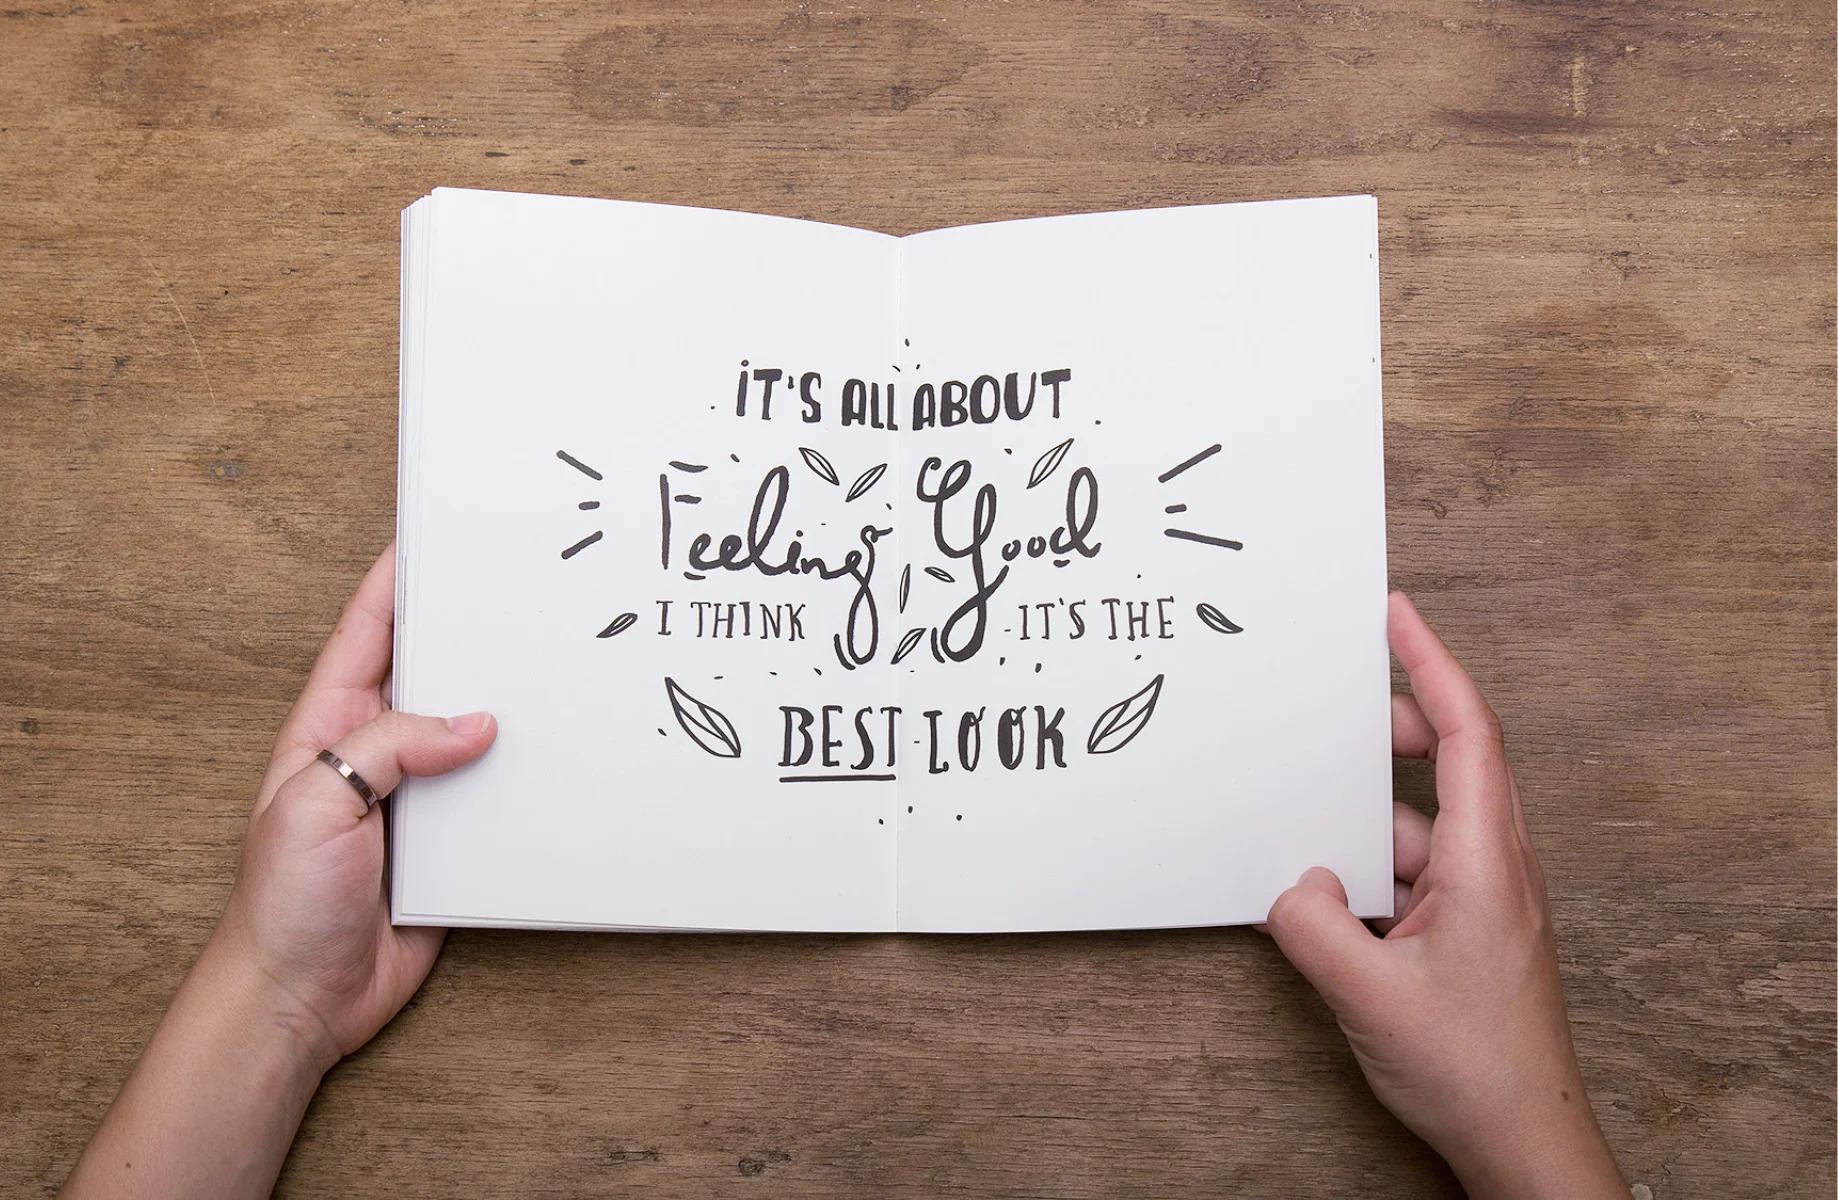 iT'S ALL ABOUT
Feeling Good
I THINK IT'S THE
BEST LOOK